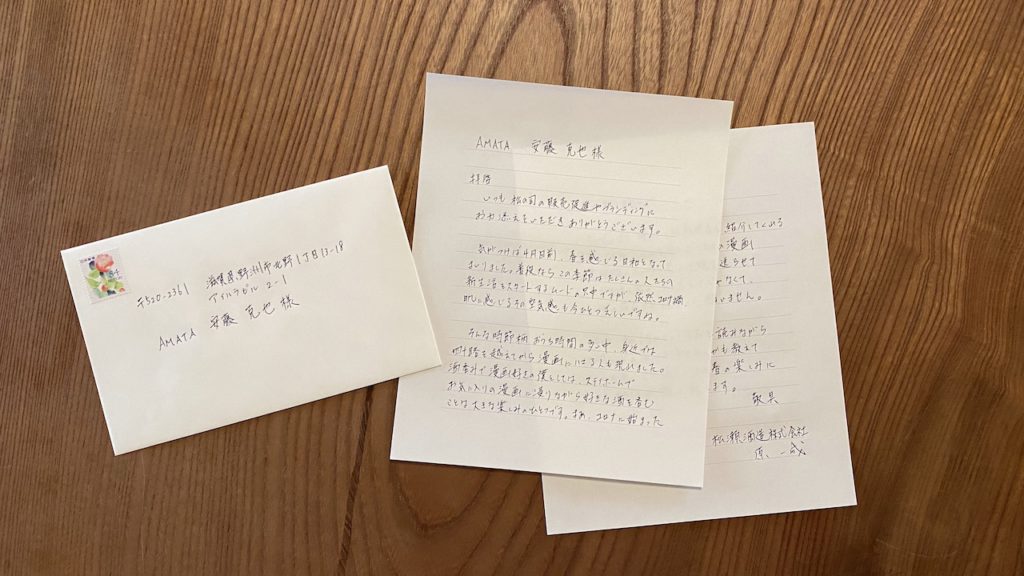 〒520-2361
滋賀県野洲市北野1丁目13-18
アイルラビル 2-1
AMATA 安藤 克也 様
84
AMATA 安藤 克也 様
拝啓
いつも松の司の販売促進やブランディングに
お力添えをいただきありがとうございます。
気がつけば4月目前、春を感じる日和となって
まいりました。普段ならこの季節はたくさんの人たちの
新生活もスタートするムードの只中ですが、依然コロナ禍
肌に感じるその空気感も今ひとつ乏しいですね。
そんな時節柄、おうち時間のタン中、身近では
四十路を越えてから漫画にハマる人も現れました。
酒蔵外で漫画好きの僕としては、ステイホームで
お気に入りの漫画に浸りながら好きな酒を呑む
ことは大きな楽しみのひとつです。さあ、コロナに始まった
紹介してくみる
の漫画
送らせて
がなくて、
いません。
読みながら
も教えて
春の楽しみに
ます。
敬具
松瀬酒造株式会社